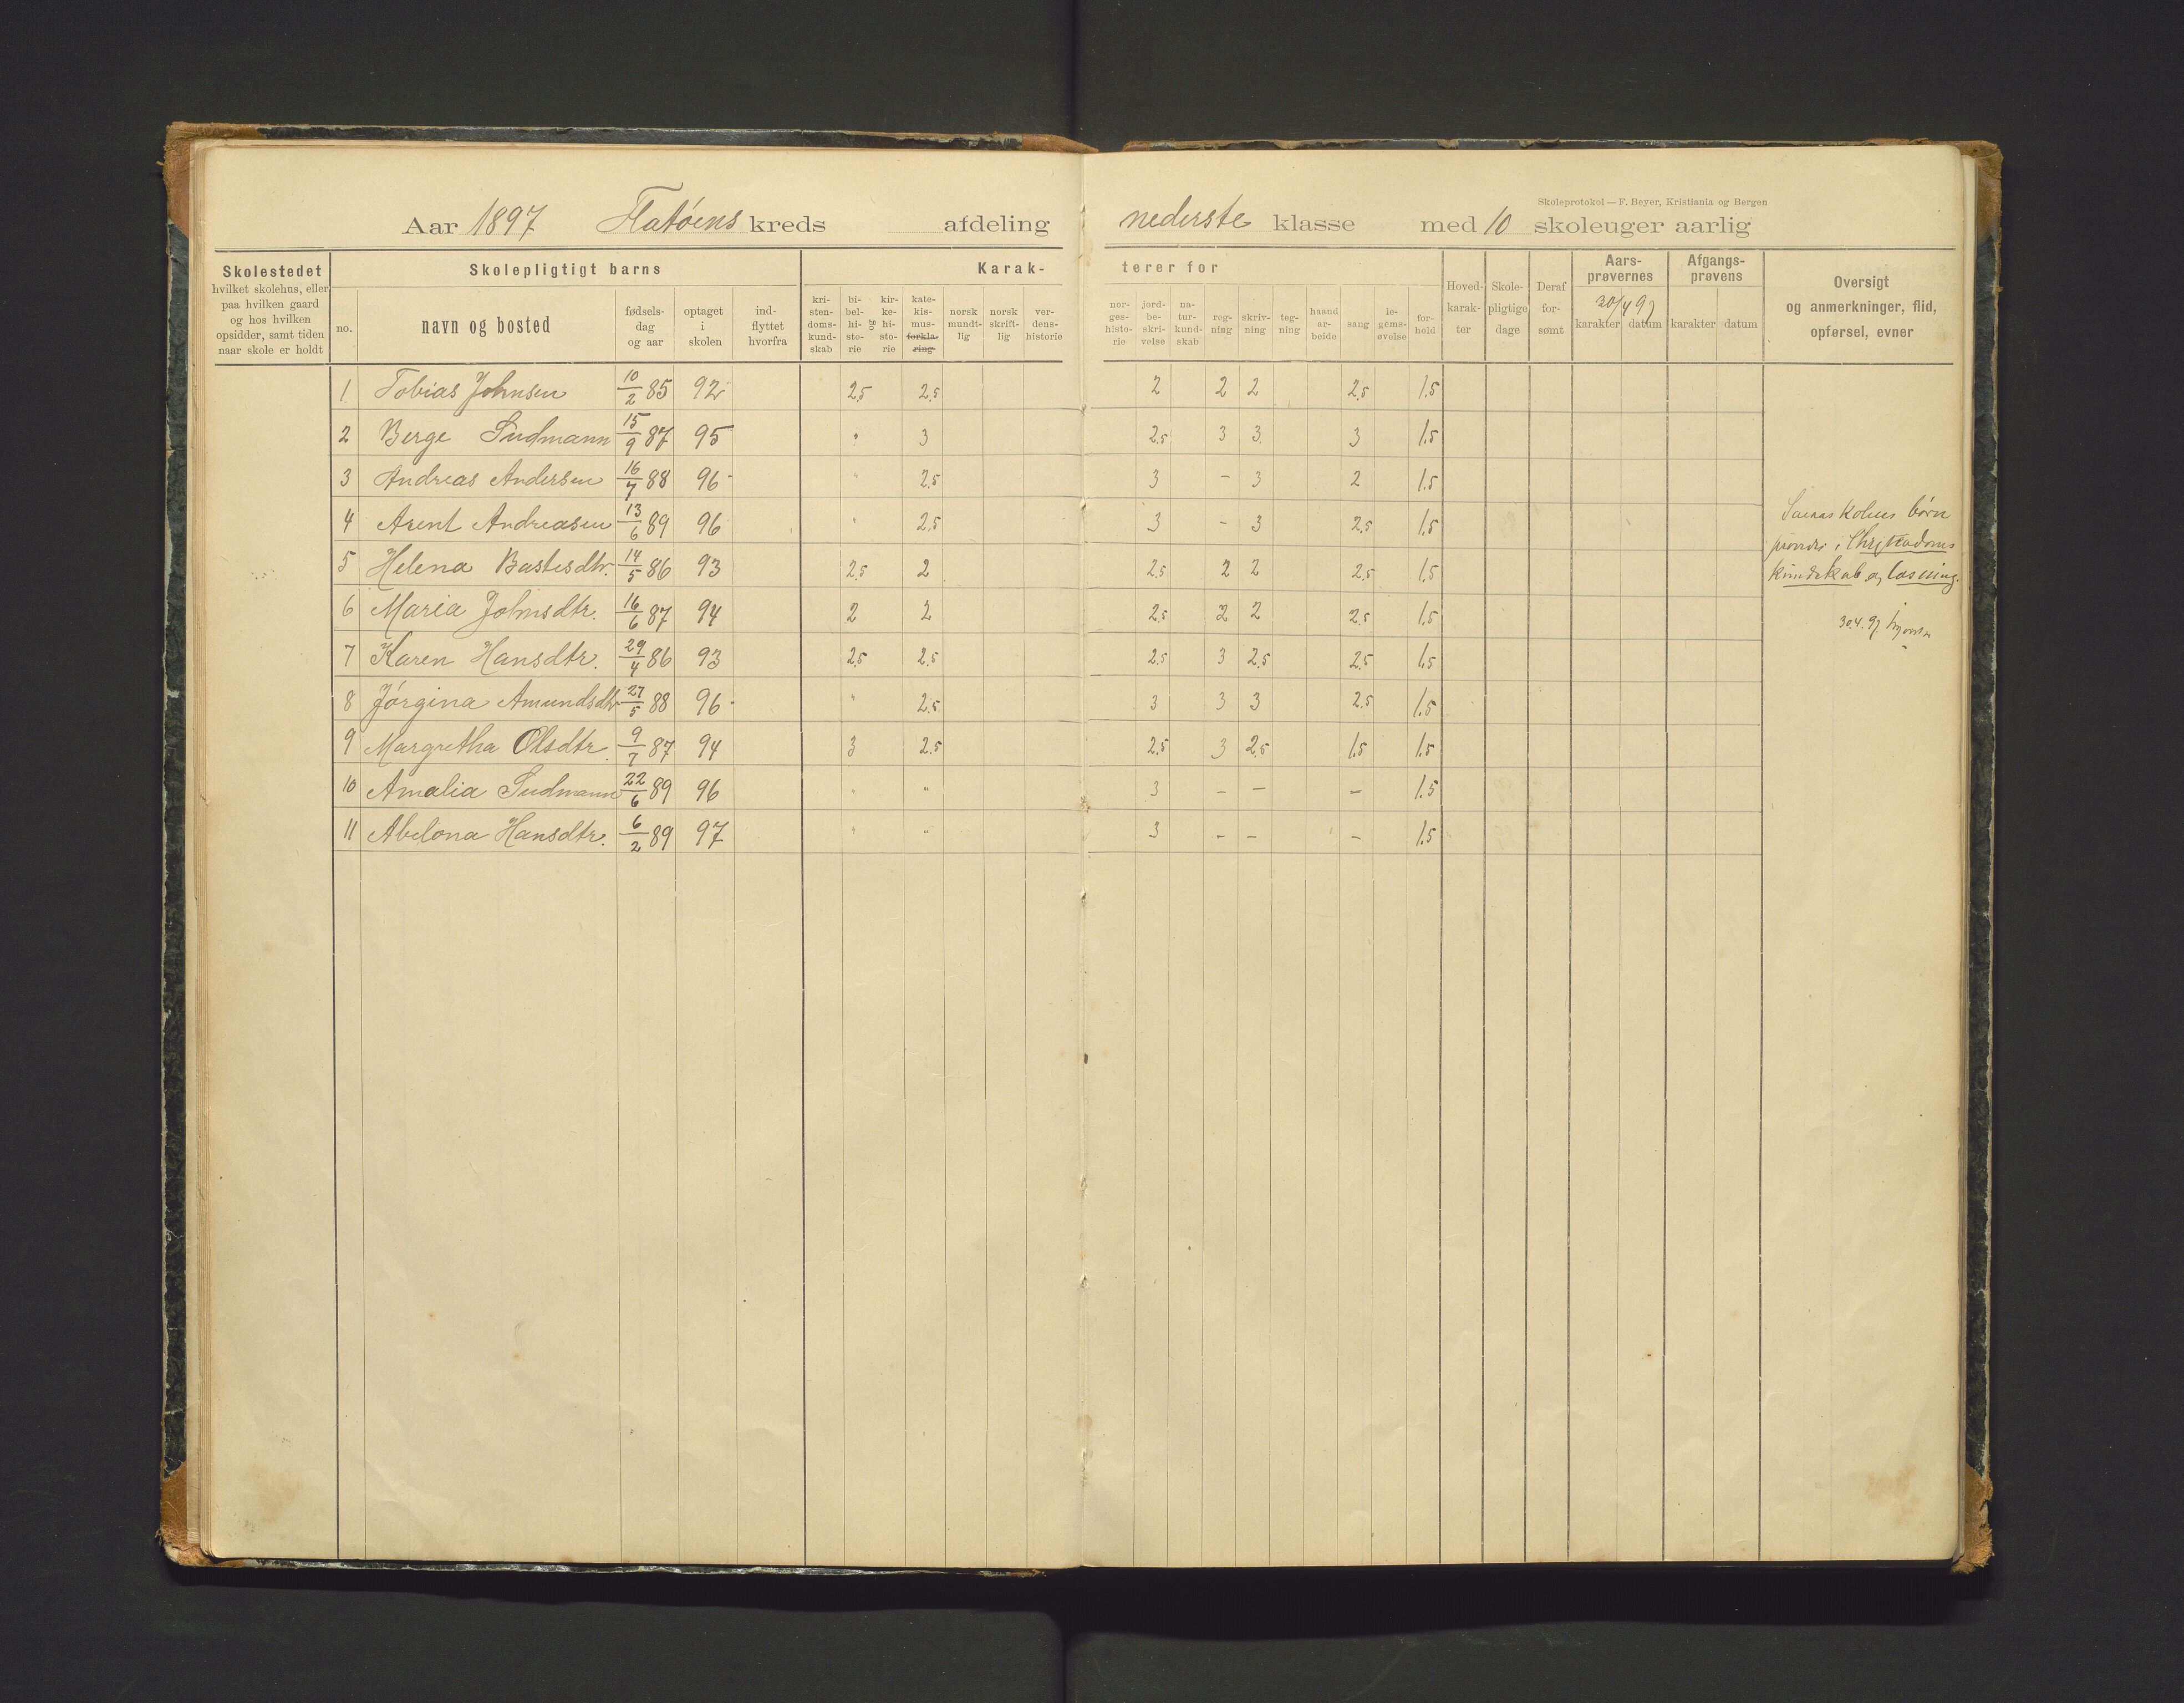 Skoleprotokol — F. Beyer, Kristiania og Bergen
Aar 1897 Flatöens kreds afdeling nederste klasse med 10 skoleuger aarlig
Skolestedet
hvilket skolehus, eller
paa hvilken gaard
og hos hvilken
opsidder, samt tiden
naar skole er holdt
Skolepligtigt barns
no.
navn og bosted
fødsels-
dag
og aar
optaget
i
skolen
ind-
flyttet
hvorfra
Karak-
kri-
sten-
doms-
kund-
skab
bi-
bel-
hi-
sto-
rie
og
kir-
ke-
hi-
sto-
rie
kate-
kis-
mus-
forkla-
ring
norsk
mundt-
lig
norsk
skrift-
lig
ver-
dens-
historie
terer for
nor-
ges-
histo-
rie
jord-
be-
skri-
velse
na-
tur-
kund-
skab
reg-
ning
skriv-
ning
teg-
ning
haand
ar-
beide
sang
le-
gems-
øvelse
for-
hold
Hoved-
karak-
ter
Skole-
pligtige
dage
Deraf
for-
sømt
Aars-
prøvernes
30/4 97
karakter datum
Afgangs-
prøvens
karakter datum
Oversigt
og anmerkninger, flid,
opførsel, evner
1 Tobias Johnsen 10/2 85 92 2,5 2,5 2 2 2 2,5 1,5
2 Berge Sudmann 15/9 87 95 " 3 2,5 3 3 3 1,5
3 Andreas Andersen 16/7 88 96 " 2,5 3 – 3 2 1,5
4 Arent Andreasen 13/6 89 96 " 2,5 3 – 3 2,5 1,5
5 Helena Bastesdtr. 14/5 86 93 2,5 2 2,5 2 2 2,5 1,5
6 Maria Johnsdtr. 16/6 87 94 2 2 2,5 2 2 2,5 1,5
7 Karen Hansdtr. 29/4 86 93 2,5 2,5 2,5 3 2,5 2,5 1,5
8 Jörgina Amundsdtr 27/5 88 96 " 2,5 3 3 3 2,5 1,5
9 Margretha Olsdtr. 9/7 87 94 3 2,5 2,5 3 2,5 1,5 1,5
10 Amalia Sudmann 22/6 89 96 " " 3 – – – 1,5
11 Abelona Hansdtr. 6/2 89 97 " " 3 – – – 1,5
børn
i Christendoms
kundskab og læsning.
30.4.97